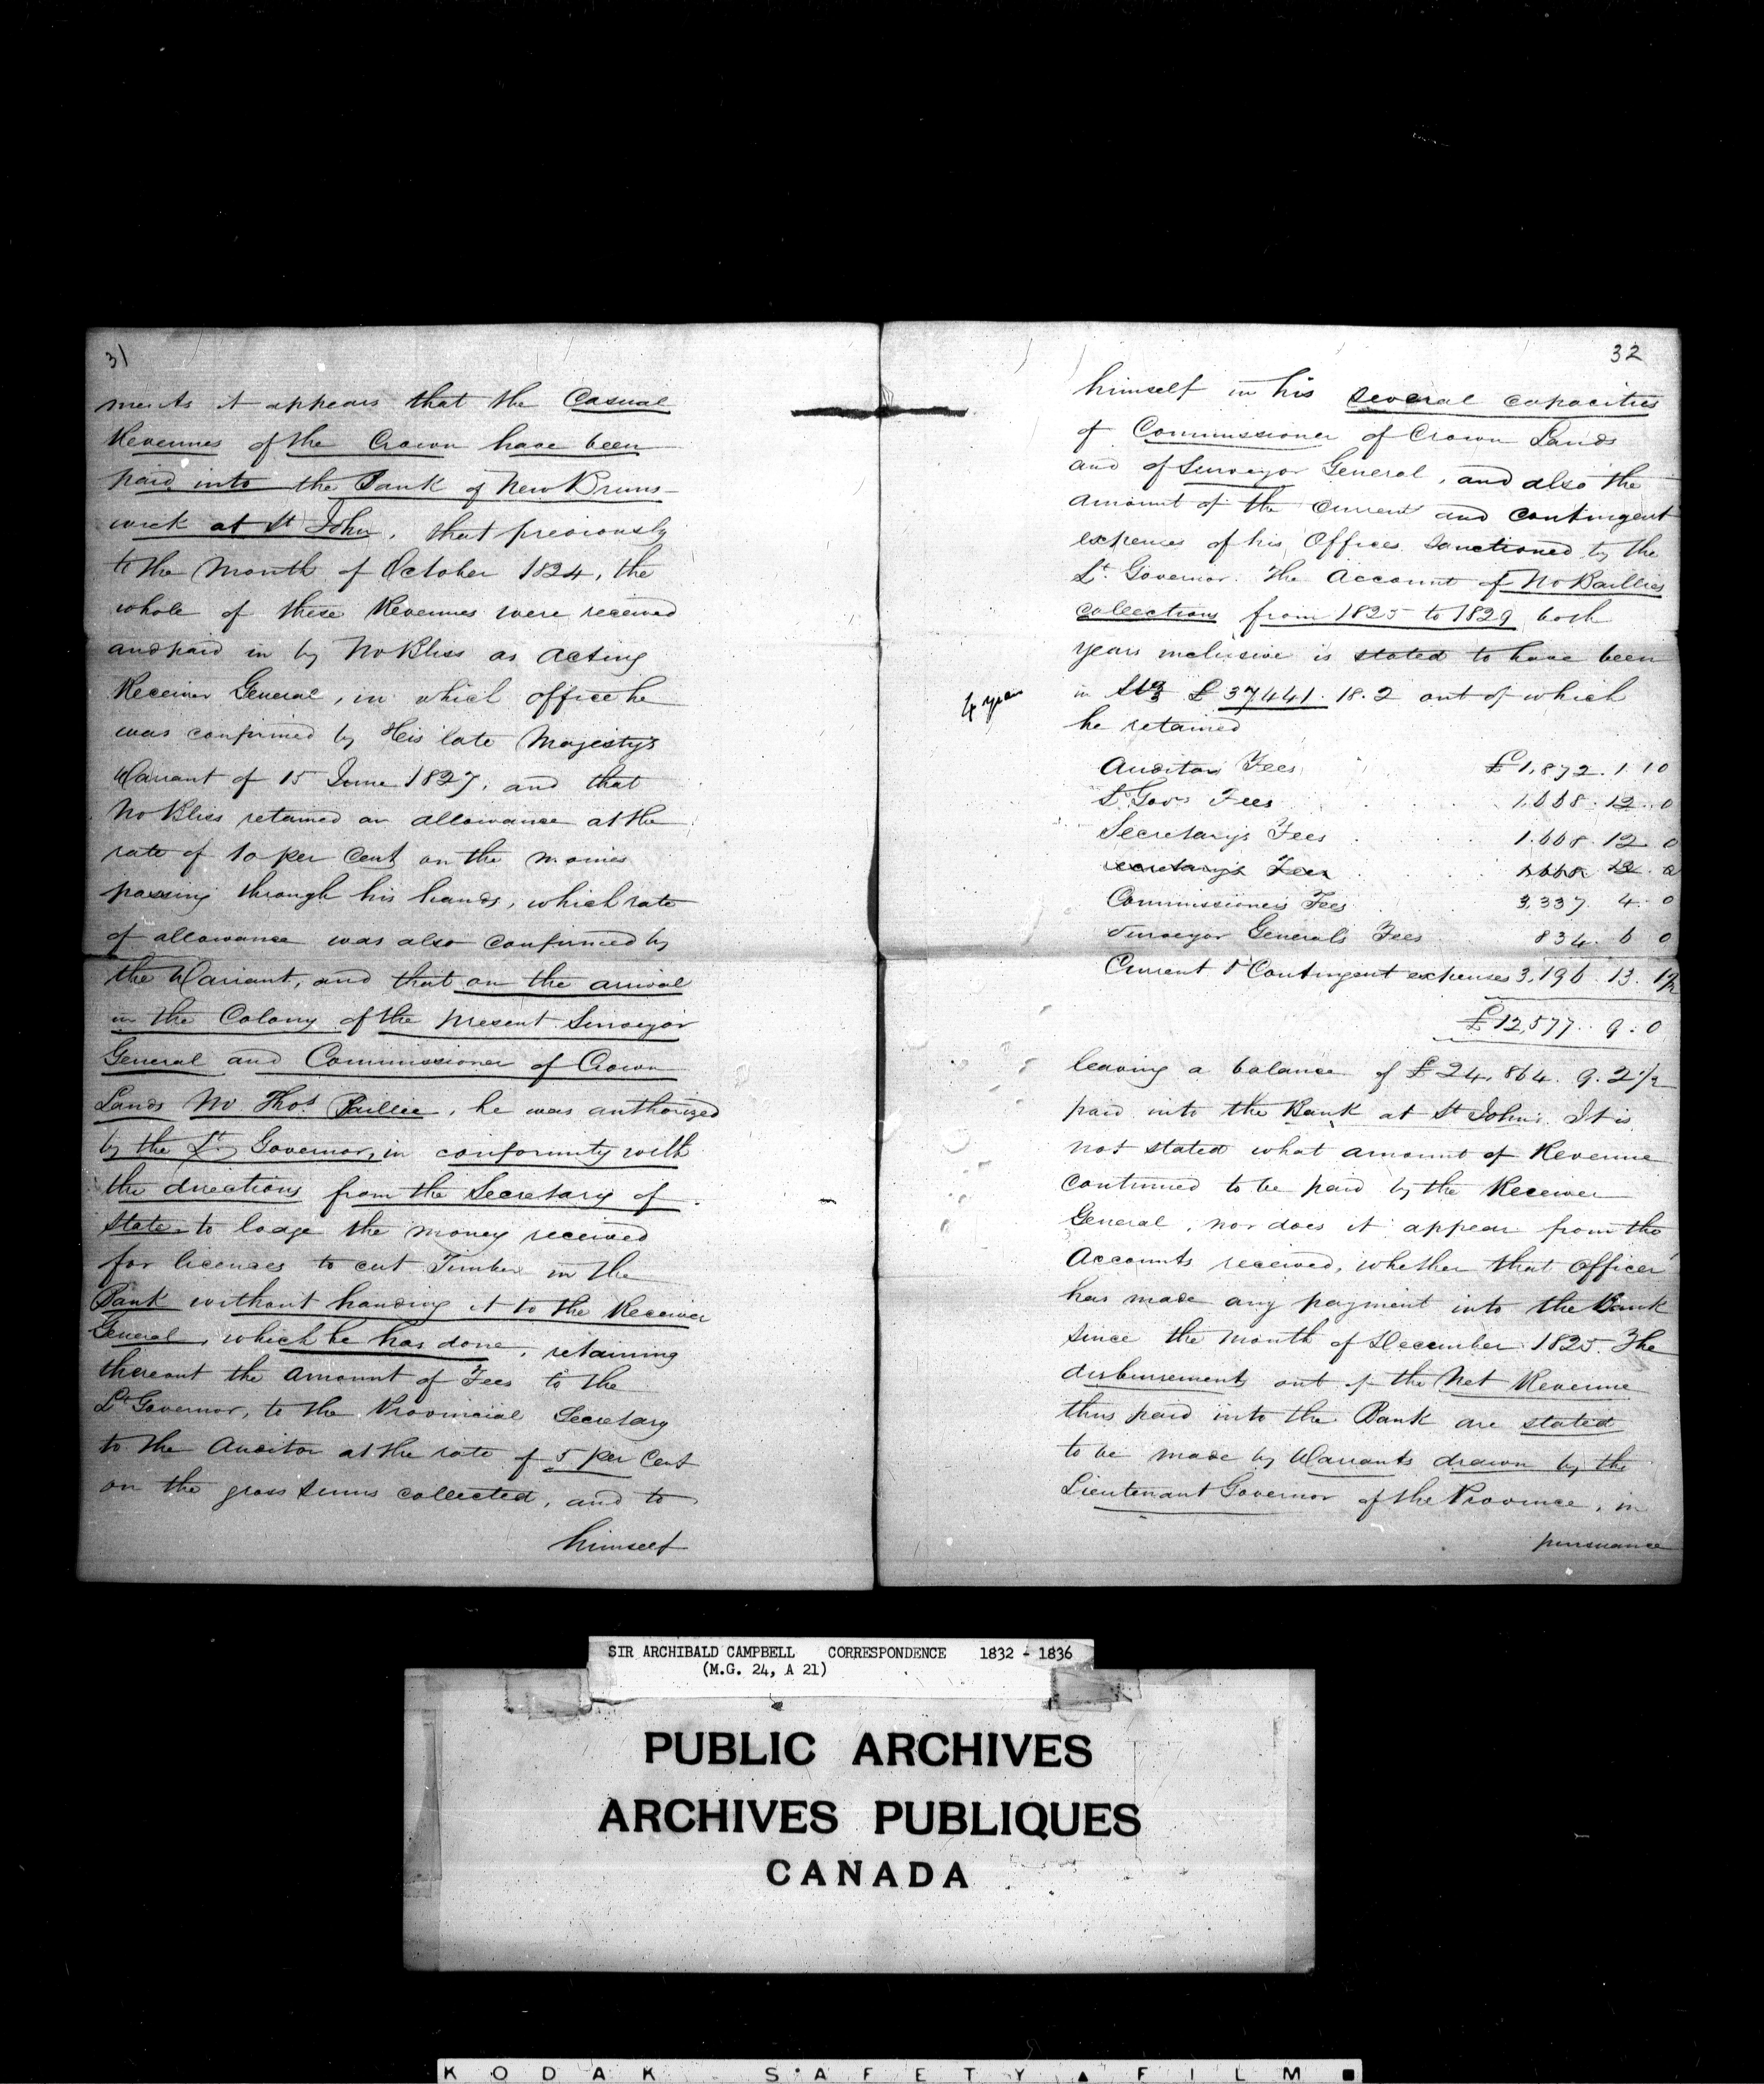 31
ments it appears that the Casual
Revenues of the Crown have been
paid into the Bank of New Bruns-
wick at St John, that previously
to the Month of October 1824, the
whole of these Revenues were received
and paid in by Mr Bliss as acting
Receiver General, in which office he
was confirmed by His late Majesty's
Warrant of 15 June 1827, and that
Mr Bliss retained an allowance at the
rate of 10 per Cent on the monies
passing through his hands, which rate
of allowance was also confirmed by
the Warrant, and that on the arrival
in the Colony of the present Surveyor
General and Commissioner of Crown
Lands Mr Thos Baillie, he was authorized
by the Lt Governor, in conformity with
the directions from the Secretary of
State to lodge the money received
for licenses to cut Timber in the
Bank without handing it to the Receiver
General, which he has done, retaining
thereout the amount of Fees to the
Lt Governor, to the Provincial Secretary
to the Auditor at the rate of 5 per Cent
on the gross sums collected, and to
himself
32
himself in his several capacities
of Commissioner of Crown Lands
and of Surveyor General, and also the
amount of the Current and Contingent
expences of his Offices sanctioned by the
Lt. Governor. The Account of Mr Baillies
collections from 1825 to 1829 both
years inclusive is stated to have been
4 year
in Stg £37441. 18. 2 out of which
he retained
Auditors Fees £1,872. 1. 10
Lt Govrs Fees 1.668. 12. 0
Secretary's Fees 1.668. 12. 0
Secretary's Fees 1668 12. 0
Commissioners Fees 3,337 4. 0
Surveyor General's Fees 834. 6 0
Current & Contingent expenses 3,196. 13. 1½
£12,577. 9. 0
leaving a balance of £24,864. 9. 2½
paid into the Bank at St John. It is
not stated what amount of Revenue
continued to be paid by the Receiver
General, nor does it appear from the
Accounts received, whether that Officer
has made any payment into the Bank
since the month of December 1825. The
disbursements out of the Net Revenue
thus paid into the Bank are stated
to be made by Warrants drawn by the
Lieutenant Governor of the Province, in
pursuance
SIR ARCHIBALD CAMPBELL CORRESPONDENCE 1832 - 1836
(M.G. 24, A 21)
PUBLIC ARCHIVES
ARCHIVES PUBLIQUES
CANADA
KODAK SAFETY ▲ FILM ■